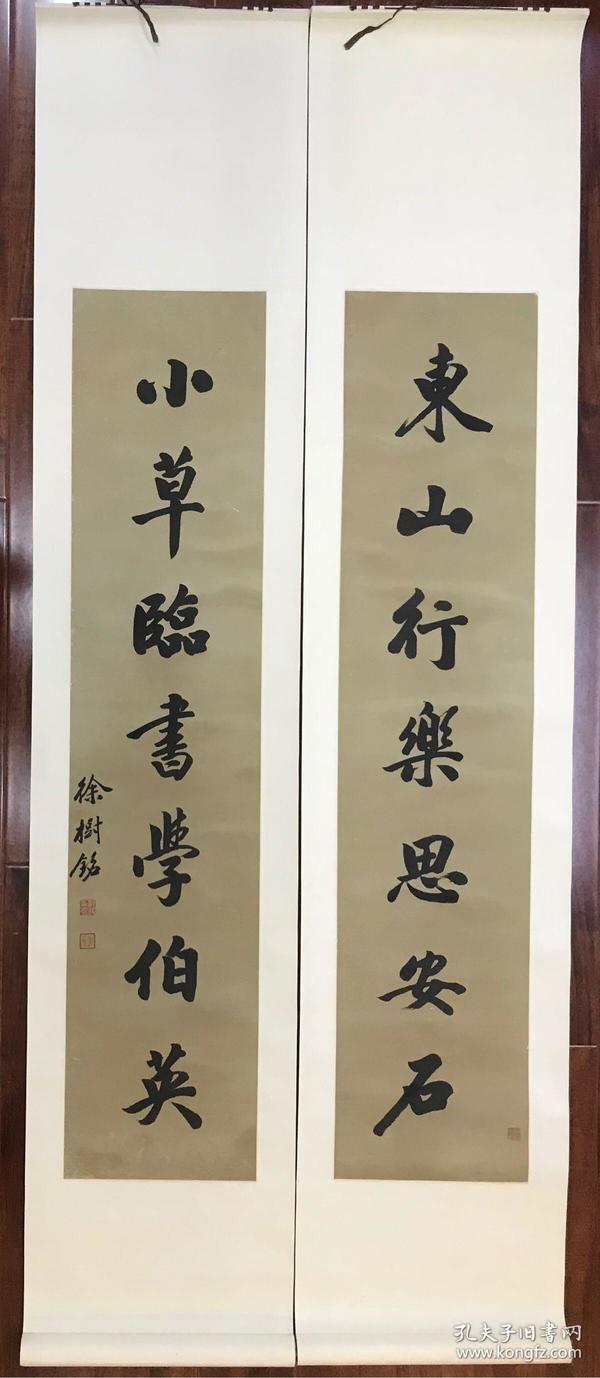 東山行樂思安石
小草臨書學伯英
徐樹銘
孔夫子旧書网
www.kongfz.com